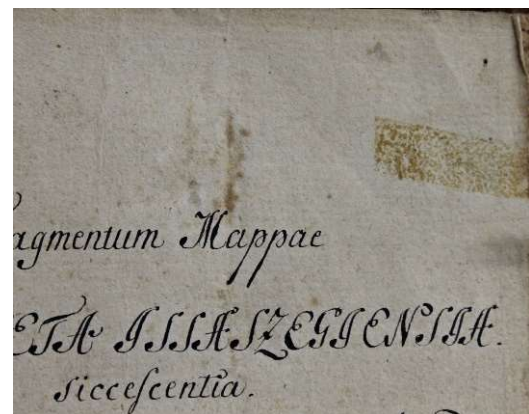 agmentum Mappae
ETA ISSASZEGIENSIA.
sicceſcentia.